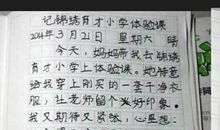 记锦绣育才小学体验课
2014年3月21日 星期六 晴
今天,妈妈带我去锦绣
育才小学上体验课。她特意
给我穿上刚买的一套干净衣
服,杜老师留个好印象。
我又期待又紧张,心里想: